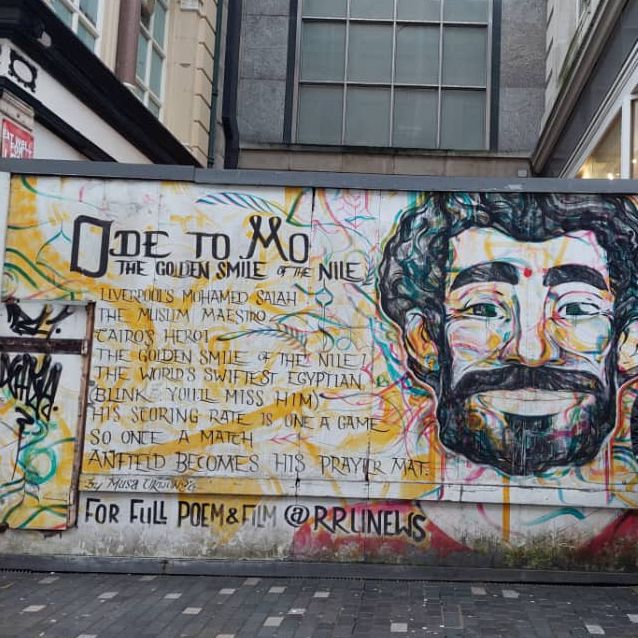 ODE TO MO
THE GOLDEN SMILE OF THE NILE
LIVERPOOL'S MOHAMED SALAH
THE MUSLIM MAESTRO,
CAIRO'S HERO!
THE GOLDEN SMILE OF THE NILE!
THE WORLD'S SWIFTEST EGYPTIAN
(BLINK & YOU'LL MISS HIM)
HIS SCORING RATE IS ONE A GAME
SO ONCE A MATCH
ANFIELD BECOMES HIS PRAYER MAT.
by MUSA
FOR FULL POEM & FILM @RRUNEWS